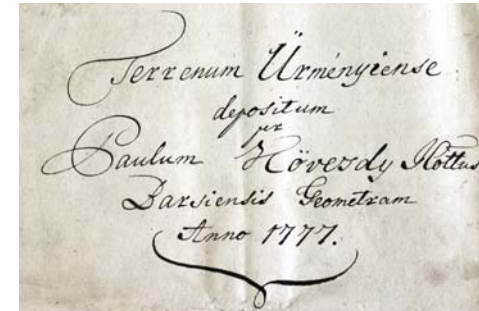 Terrenum Ürményiense
depositum
per
Paulum Kövesdy Ittus
Barsiensis Geometram
Anno 1777.